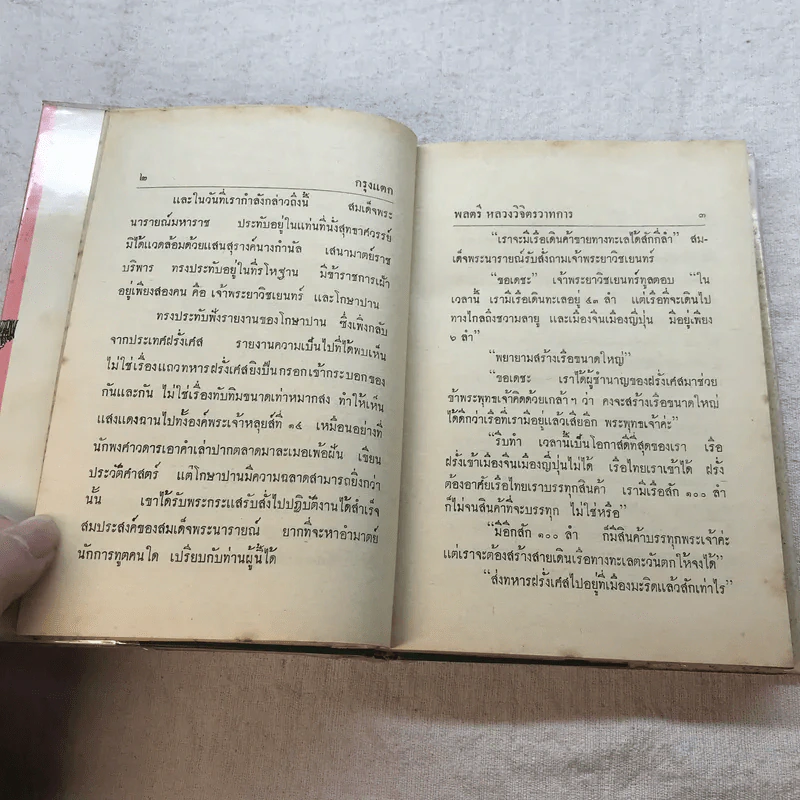 ๒ กรุงแตก
และในวันที่เรากำลังกล่าวถึงนี้ สมเด็จพระ
นารายณ์มหาราช ประทับอยู่ในแท่นที่นั่งสุทธาศวรรย์
มิได้แวดล้อมด้วยแสนสุรางค์นางกำนัล เสนามาตย์ราช
บริพาร ทรงประทับอยู่ในที่รโหฐาน มีข้าราชการเฝ้า
อยู่เพียงสองคน คือ เจ้าพระยาวิชเยนทร์ และโกษาปาน
ทรงประทับฟังรายงานของโกษาปาน ซึ่งเพิ่งกลับ
จากประเทศฝรั่งเศส รายงานความเป็นไปที่ได้พบเห็น
ไม่ใช่เรื่องแถวทหารฝรั่งเศสยิงปืนกรอกเข้ากระบอกของ
กันและกัน ไม่ใช่เรื่องทับทิมขนาดเท่าหมากสง ทำให้เห็น
แสงแดงฉานไปทั้งองค์พระเจ้าหลุยส์ที่ ๑๔ เหมือนอย่างที่
นักพงศาวดารเอาคำเล่าปากตลาดมาละเมอเพ้อฝัน เขียน
ประวัติศาสตร์ แต่โกษาปานมีความฉลาดสามารถยิ่งกว่า
นั้น เขาได้รับพระกระแสรับสั่งไปปฏิบัติงานได้สำเร็จ
สมประสงค์ของสมเด็จพระนารายณ์ ยากที่จะหาอำมาตย์
นักการทูตคนใด เปรียบกับท่านผู้นี้ได้
พลตรี หลวงวิจิตรวาทการ ๓
“เราจะมีเรือเดินค้าขายทางทะเลได้สักกี่ลำ” สม-
เด็จพระนารายณ์รับสั่งถามเจ้าพระยาวิชเยนทร์
“ขอเดชะ” เจ้าพระยาวิชเยนทร์ทูลตอบ “ใน
เวลานี้ เรามีเรือเดินทะเลอยู่ ๔๓ ลำ แต่เรือที่จะเดินไป
ทางไกลถึงชวามลายู และเมืองจีนเมืองญี่ปุ่น มีอยู่เพียง
๖ ลำ”
“พยายามสร้างเรือขนาดใหญ่”
“ขอเดชะ เราได้ผู้ชำนาญของฝรั่งเศสมาช่วย
ข้าพระพุทธเจ้าคิดด้วยเกล้าฯ ว่า คงจะสร้างเรือขนาดใหญ่
ได้ดีกว่าเรือที่เรามีอยู่แล้วเสียอีก พระพุทธเจ้าค่ะ”
“รีบทำ เวลานี้เป็นโอกาสดีที่สุดของเรา เรือ
ฝรั่งเข้าเมืองจีนเมืองญี่ปุ่นไม่ได้ เรือไทยเราเข้าได้ ฝรั่ง
ต้องอาศัยเรือไทยเราบรรทุกสินค้า เรามีเรือสัก ๑๐๐ ลำ
ก็ไม่จนสินค้าที่จะบรรทุก ไม่ใช่หรือ”
“มีอีกสัก ๑๐๐ ลำ ก็มีสินค้าบรรทุกพระเจ้าค่ะ
แต่เราจะต้องสร้างสายเดินเรือทางทะเลตะวันตกให้จงได้”
“ส่งทหารฝรั่งเศสไปอยู่ที่เมืองมะริดแล้วสักเท่าไร”